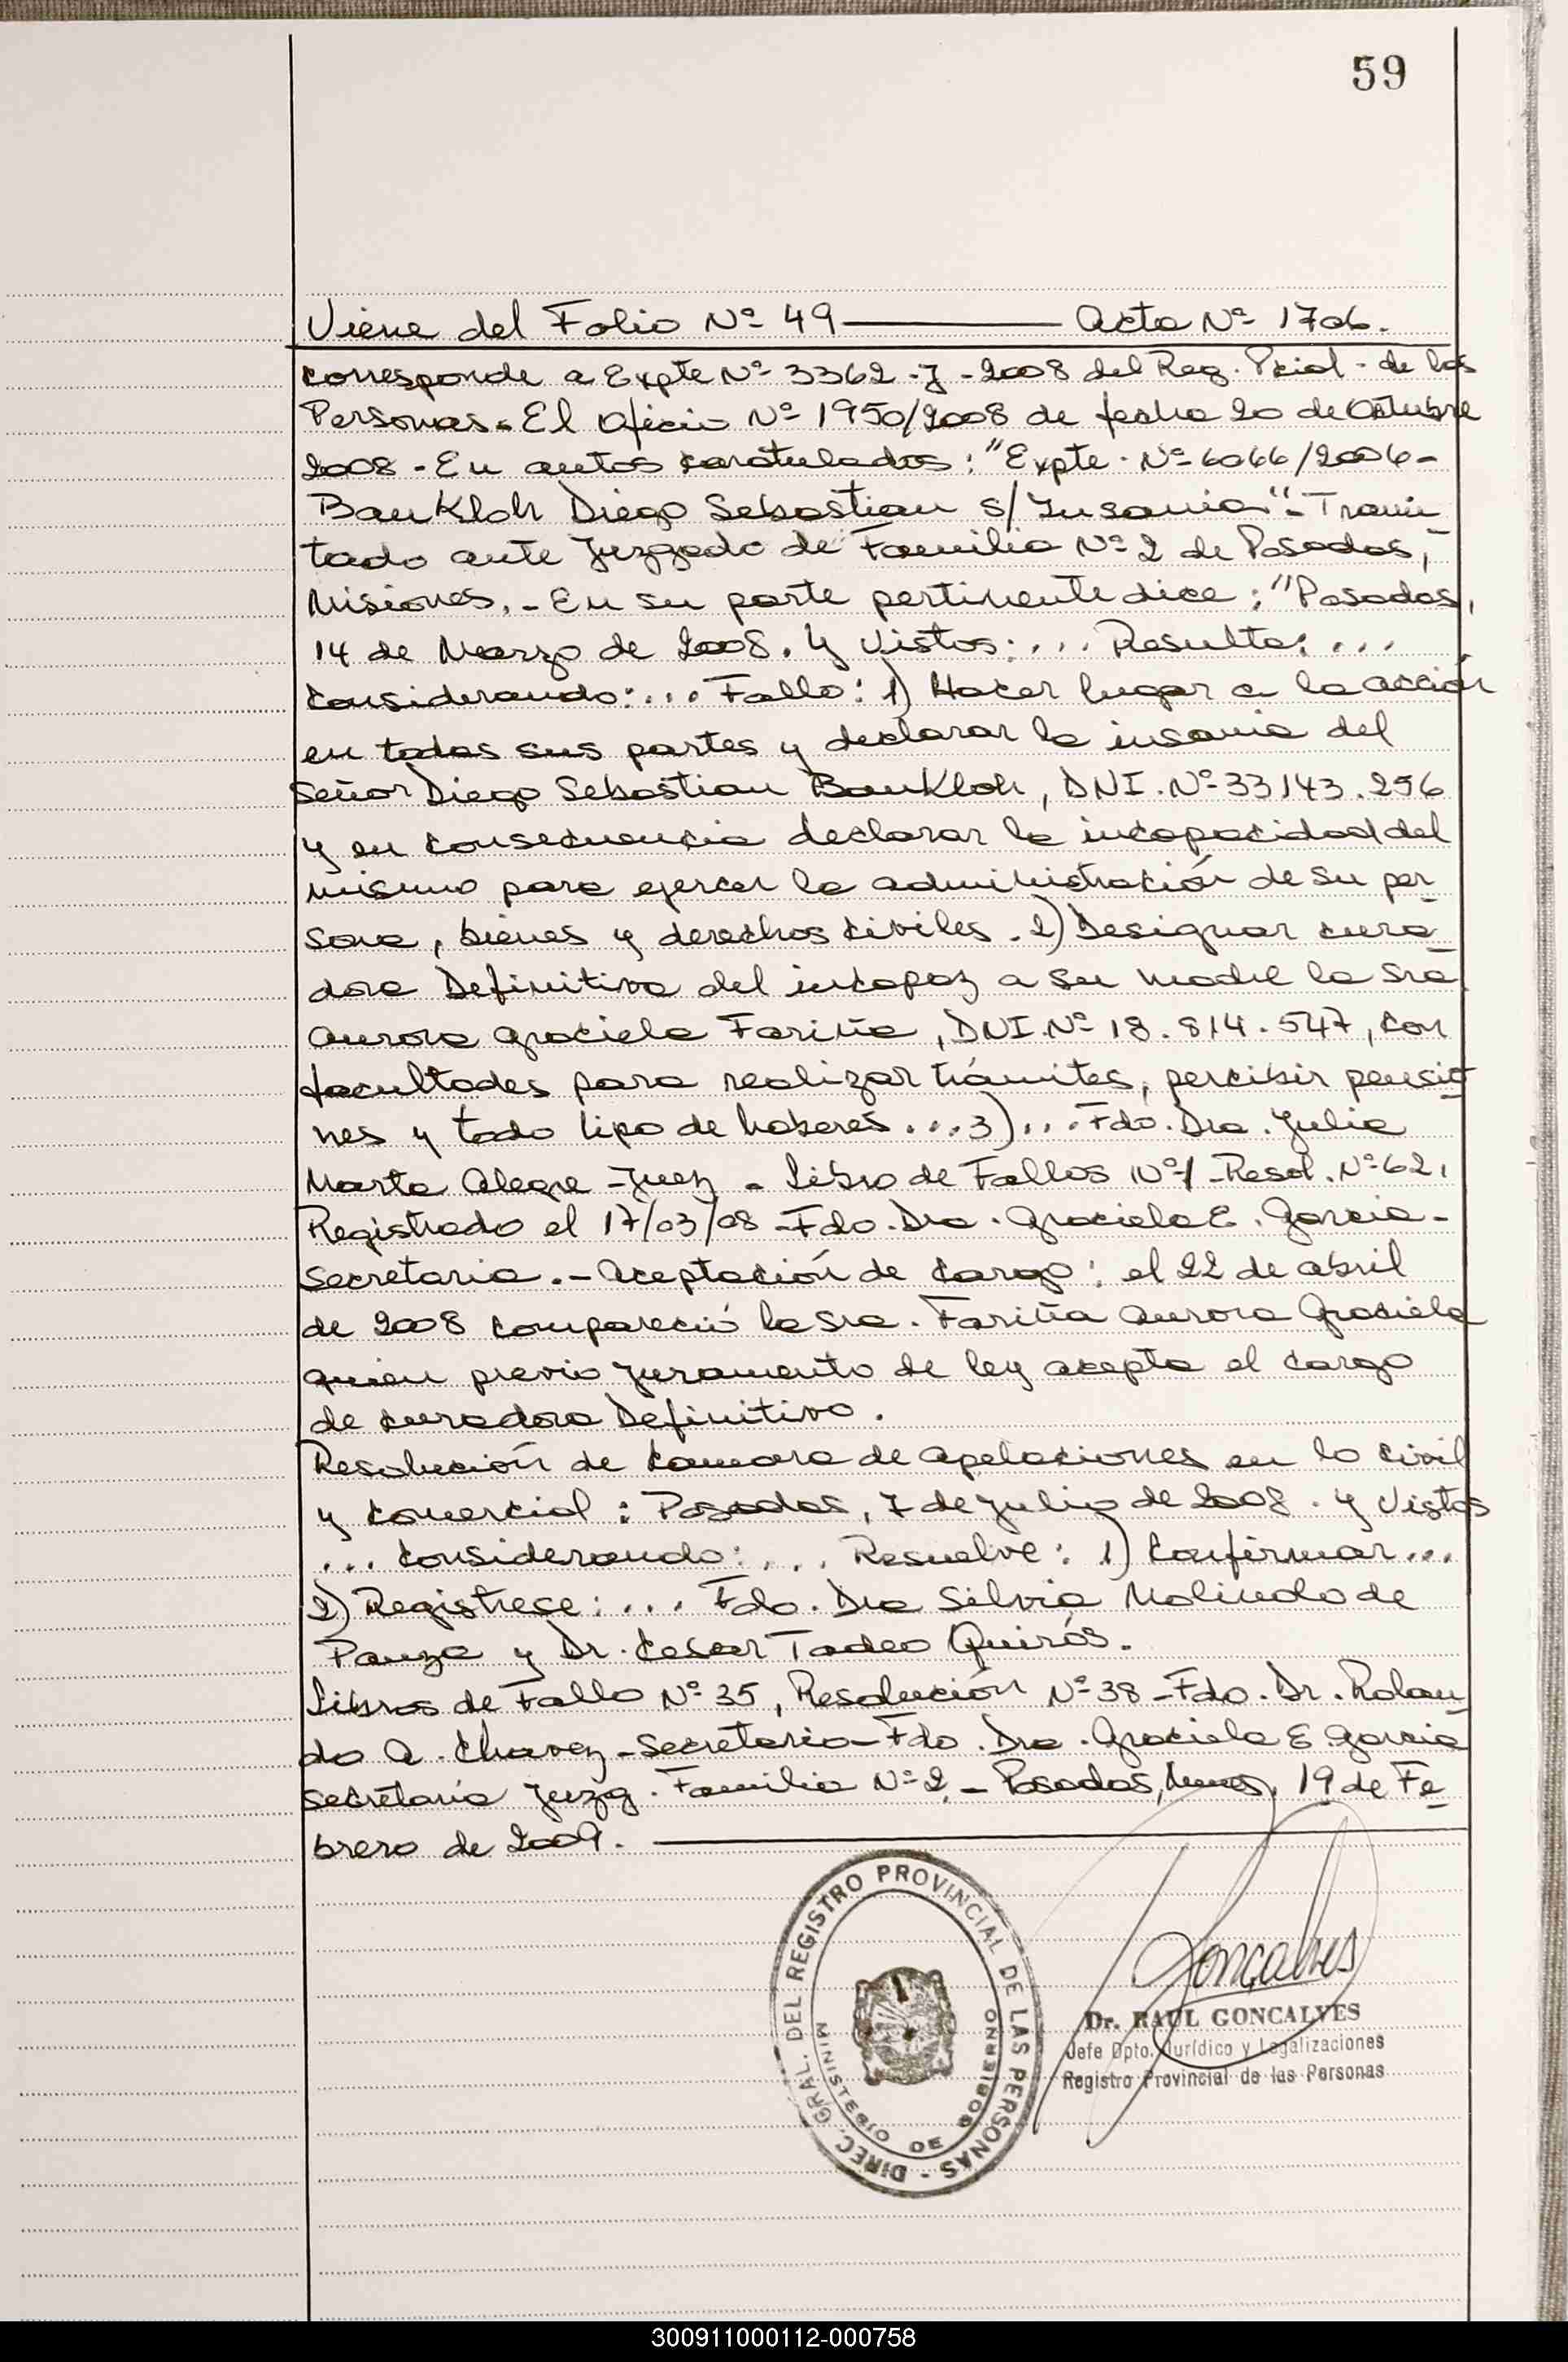 59
Viene del Folio Nº 49 ——— Acta Nº 1706.
corresponde a Expte Nº 3362-J-2008 del Reg. Pcial. de las
Personas.- El Oficio Nº 1950/2008 de fecha 20 de Octubre
2008 - En autos caratulados: "Expte. Nº 6066/2006-
BauKloh Diego Sebastian s/ Insania"- Trami_
tado ante Juzgado de Familia Nº 2 de Posadas,
Misiones.- En su parte pertinente dice: "Posadas,
14 de Marzo de 2008. Y Vistos:... Resulta:...
Considerando:... Fallo: 1) Hacer lugar a la acción
en todas sus partes y declarar la insania del
Señor Diego Sebastian BauKloh, DNI. Nº 33143.256
y en consecuencia declarar la incapacidad del
mismo para ejercer la administración de su per_
sona, bienes y derechos civiles. 2) Designar cura_
dora Definitiva del incapaz a su madre la Sra.
Aurora Graciela Fariña, DNI. Nº 18.814.547, con
facultades para realizar trámites, percibir pensio_
nes y todo tipo de haberes...3)... Fdo. Dra. Julia
Marta Alegre - Juez - Libro de Fallos Nº 1 - Resol. Nº 62,
Registrado el 17/03/08 - Fdo. Dra. Graciela E. Garcia-
Secretaria.- Aceptación de Cargo: el 22 de abril
de 2008 compareció la Sra. Fariña Aurora Graciela
quien previo juramento de ley acepta el cargo
de curadora Definitiva.
Resolución de Camara de Apelaciones en lo Civil
y Comercial: Posadas, 7 de Julio de 2008. Y Vistos
... Considerando:... Resuelve: 1) Confirmar...
2) Registrese:... Fdo. Dra Silvia Molindo de
y Dr. Cesar Tadeo Quirós.
Libros de Fallo Nº 35, Resolución Nº 38 - Fdo. Dr. Rolan_
do A. Chavez - Secretario - Fdo. Dra. Graciela E Garcia
Secretaria Juzg. Familia Nº 2.- Posadas, Mnes, 19 de Fe_
brero de 2009.
DIREC. GRAL. DEL REGISTRO PROVINCIAL DE LAS PERSONAS -
MINISTERIO DE GOBIERNO
Gonçalves
Dr. RAUL GONCALVES
Jefe Dpto. Jurídico y Legalizaciones
Registro Provincial de las Personas
300911000112-000758